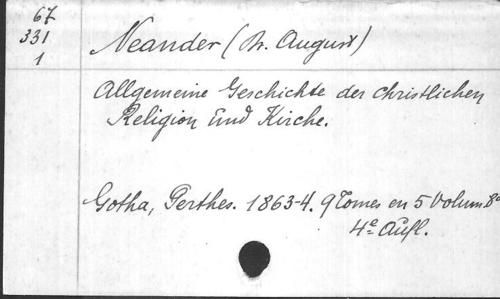 67
331
1
Neander (Dr. August)
Allgemeine Geschichte der christlichen
Religion und Kirche.
Gotha, Perthes. 1863-4. 9 Tomes en 5 Volum. 8º
4e Aufl.